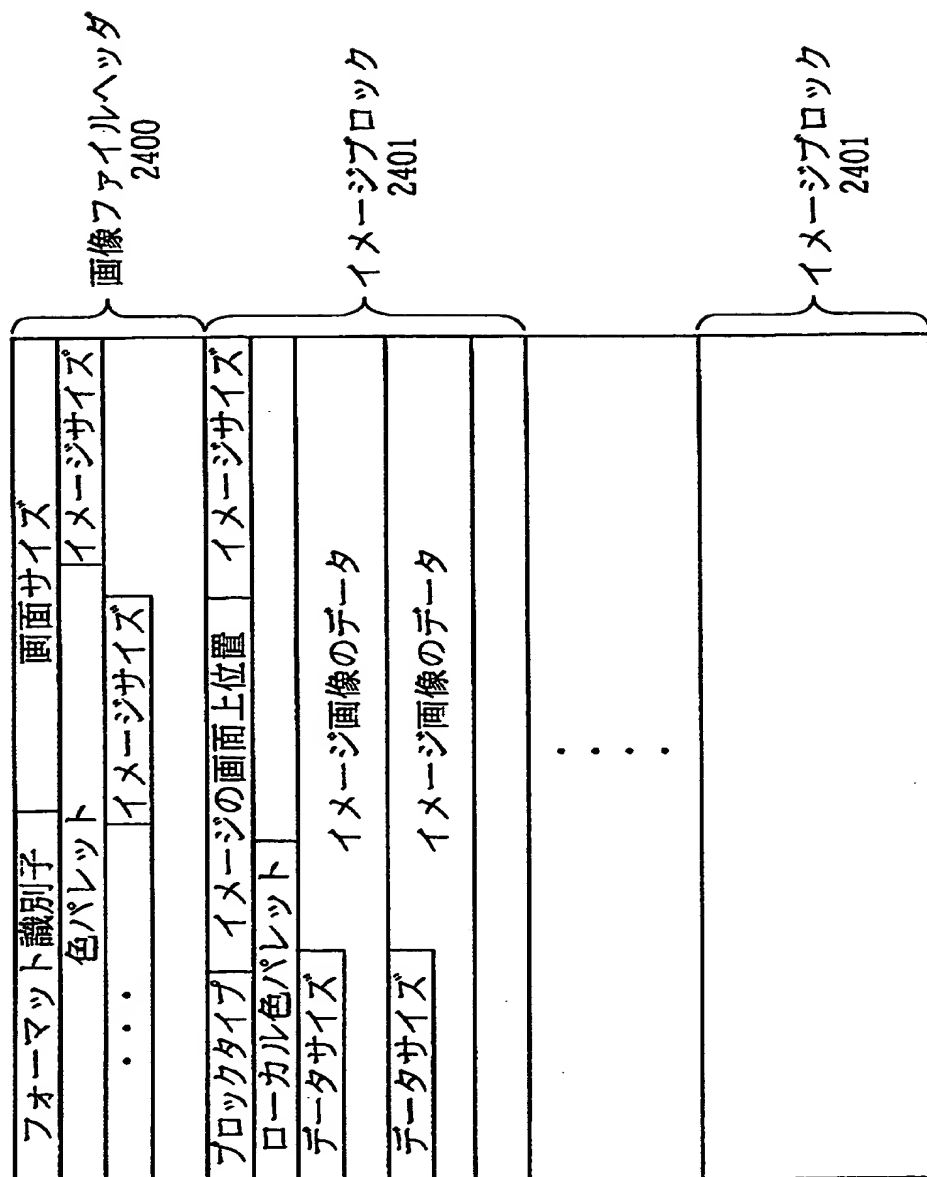 フォーマット識別子 画面サイズ
色パレット イメージサイズ
・・・ イメージサイズ
画像ファイルヘッダ
2400
ブロックタイプ イメージの画面上位置 イメージサイズ
ローカル色パレット
データサイズ イメージ画像のデータ
データサイズ イメージ画像のデータ
イメージブロック
2401
・・・・
イメージブロック
2401